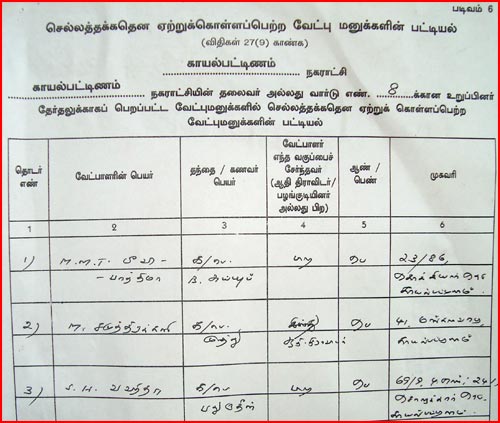 படிவம் 6
செல்லத்தக்கதென ஏற்றுக்கொள்ளப்பெற்ற வேட்பு மனுக்களின் பட்டியல்
(விதிகள் 27(9) காண்க)
காயல்பட்டிணம் நகராட்சி
காயல்பட்டிணம் நகராட்சியின் தலைவர் அல்லது வார்டு எண். 8 க்கான உறுப்பினர்
தேர்தலுக்காகப் பெறப்பட்ட வேட்புமனுக்களில் செல்லத்தக்கதென ஏற்றுக் கொள்ளப்பெற்ற
வேட்புமனுக்களின் பட்டியல்
தொடர் எண்
வேட்பாளரின் பெயர்
தந்தை / கணவர் பெயர்
வேட்பாளர் எந்த வகுப்பைச் சேர்ந்தவர் (ஆதி திராவிடர் / பழங்குடியினர் அல்லது பிற)
ஆண் / பெண்
முகவரி
1 2 3 4 5 6
1) M.M.T. பீவி - க/பெ. பிற பெ 23/86,
- பாத்திமா
2) M. க/பெ. இந்து பெ 41,
முத்து ஆதி திராவிடர்
3) S.H. க/பெ. பிற பெ